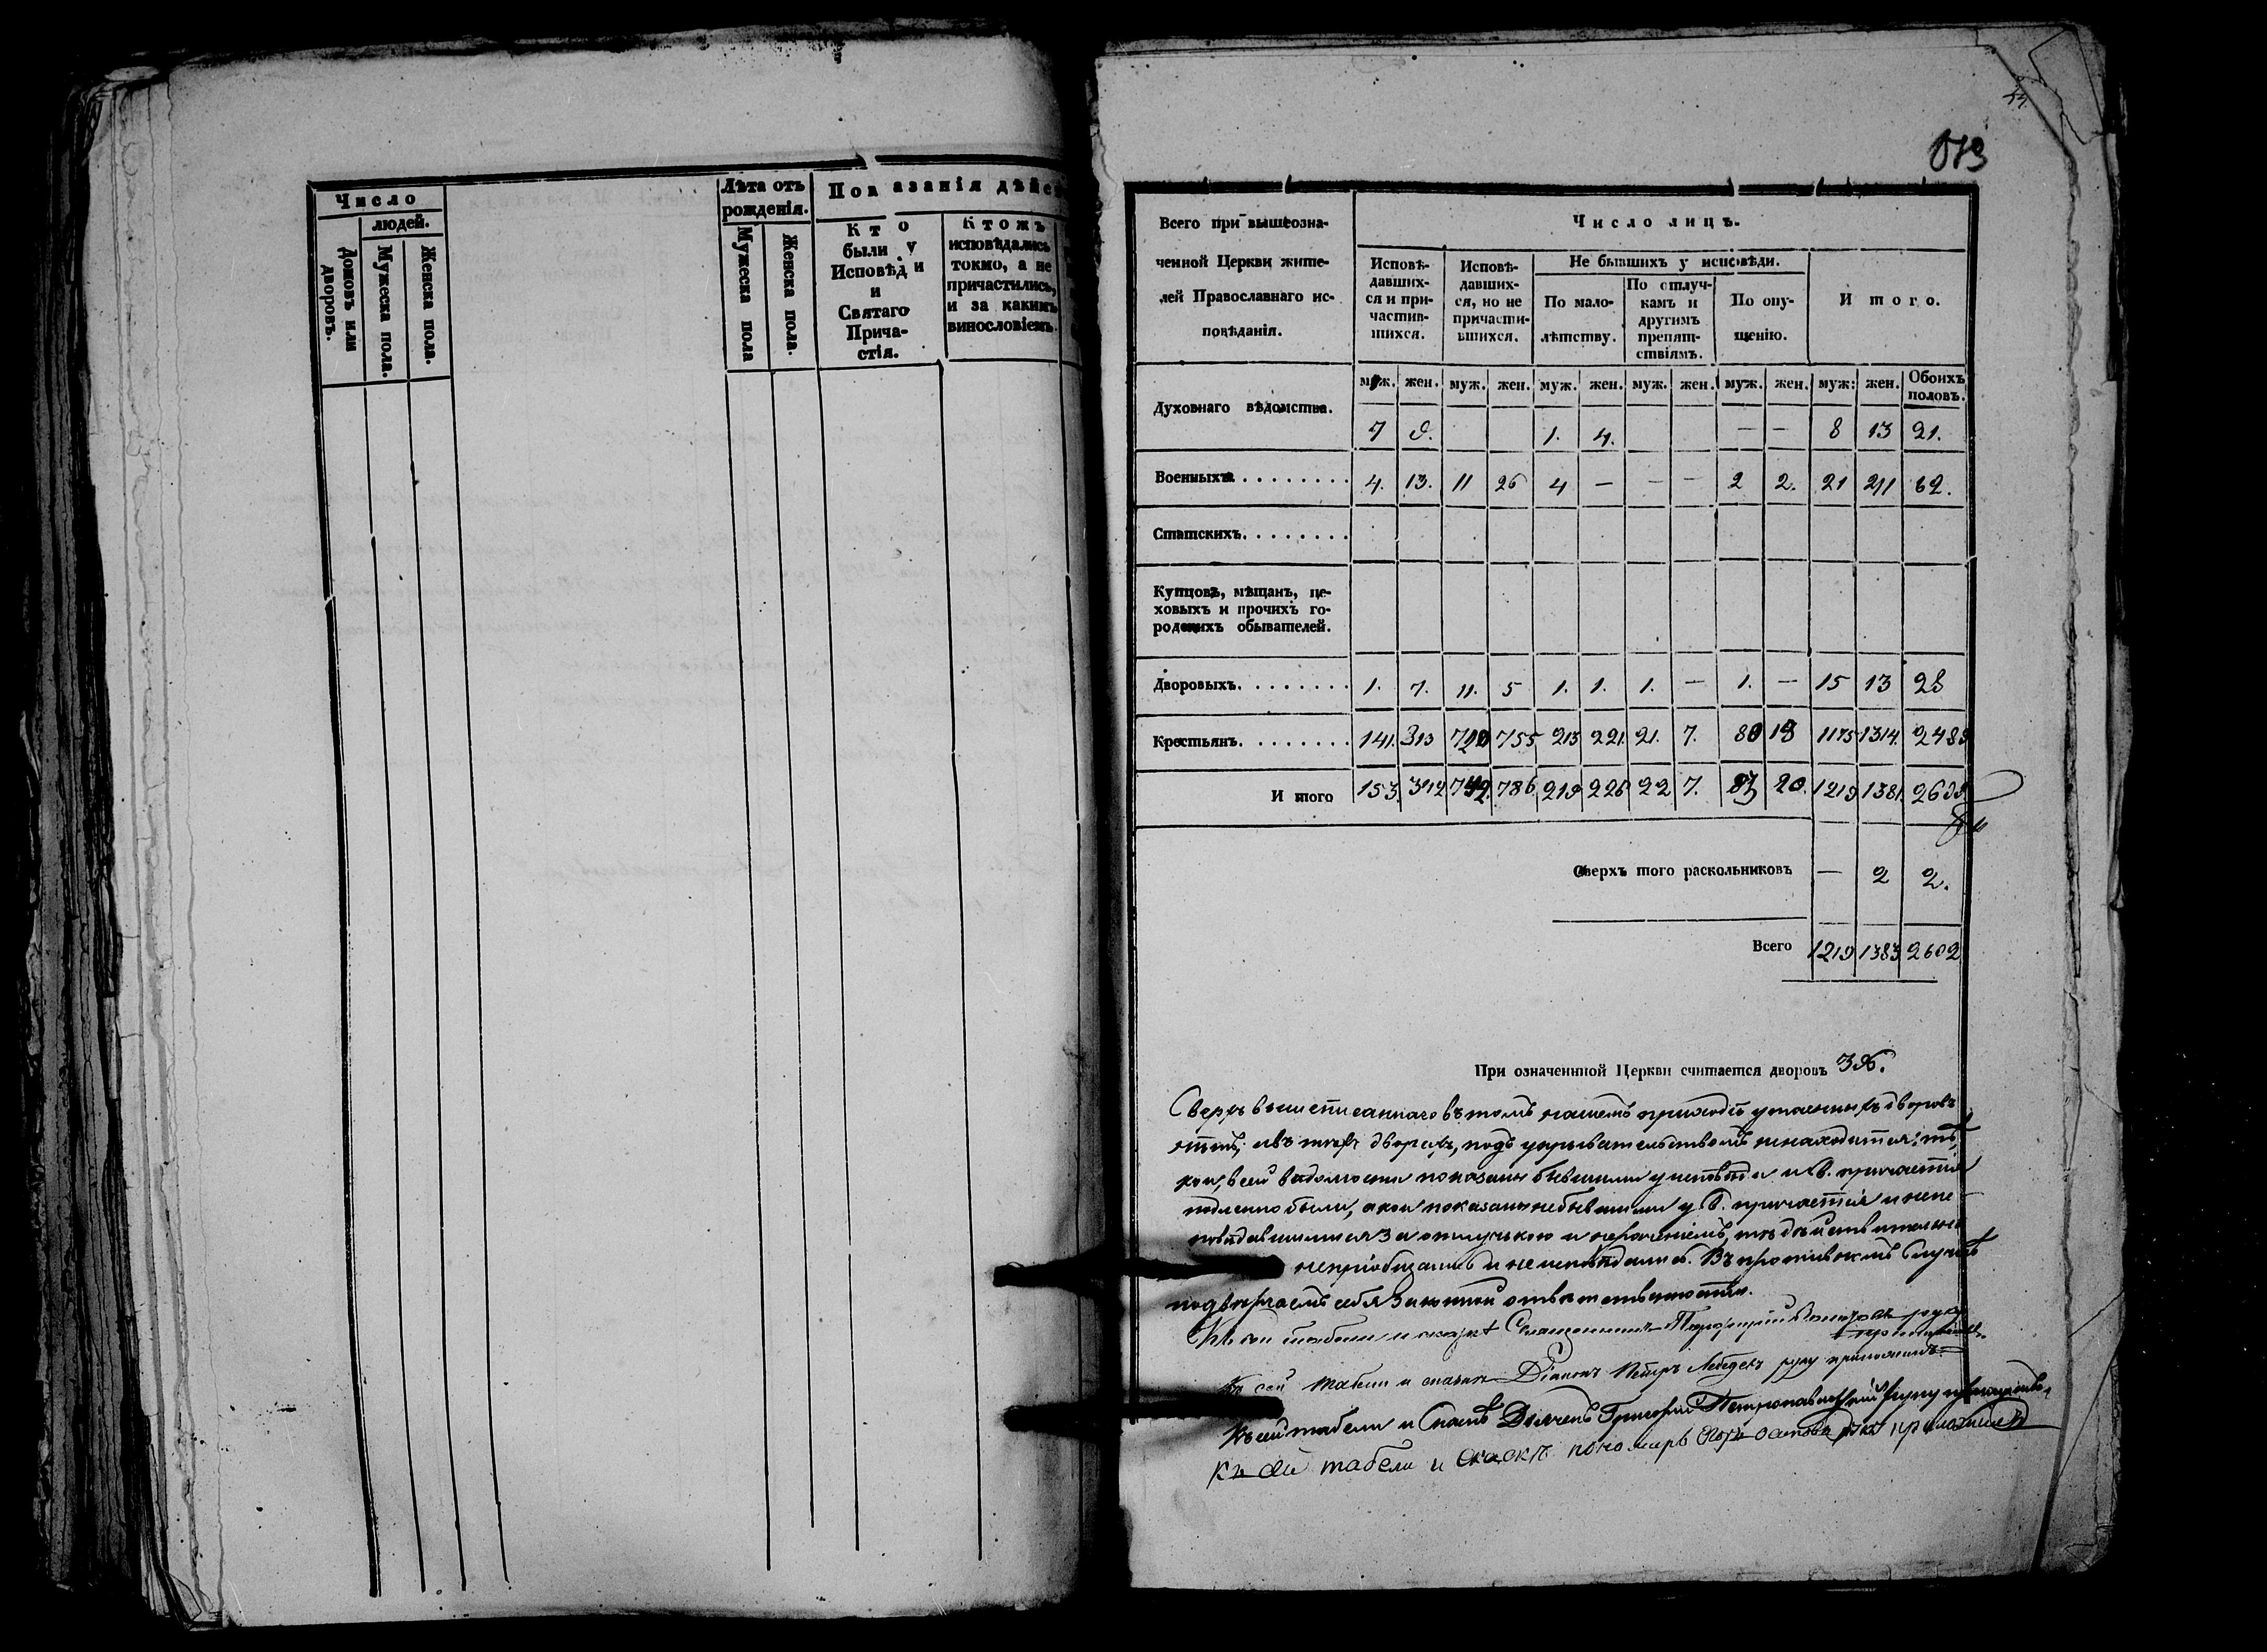 Число
людей.
Домовъ или дворовъ.
Мужеска пола.
Женска пола.
Лѣта отъ рожденія.
Мужеска пола
Женска пола.
Показанія дѣйс
Кто были у Исповѣди и Святаго Причастія.
Ктожъ исповѣдались токмо, а не причастились, и за какимъ винословіемъ.
Всего при вышеозна-
ченной Церкви жите-
лей Православнаго ис-
повѣданія.
Число лицъ.
Исповѣ-
давших-
ся и при-
частив-
шихся.
Исповѣ-
давших-
ся, но не
причасти-
вшихся.
Не бывшихъ у исповѣди.
По мало-
лѣтству.
По отлуч-
камъ и
другимъ
препят-
ствіямъ.
По опу-
щенію.
Итого.
муж. жен. муж. жен. муж. жен. муж. жен. муж. жен. муж: жен. Обоихъ половъ.
Духовнаго вѣдомства. 7 9. 1. 4. — — 8 13 21.
Военныхъ 4. 13. 11 26 4 — — — 2 2. 21 41 62.
Статскихъ.
Купцовъ, мѣщанъ, це-
ховыхъ и прочихъ го-
родскихъ обывателей.
Дворовыхъ. 1. 7. 11. 5 1. 1. 1. — 1. — 15 13 28
Крестьянъ. 141. 313 720 755 213 221. 21. 7. 80 18 1175 1314. 2489
Итого 153. 342 742. 786. 219 226 22 7. 83 20. 1219 1381.
Сверхъ того раскольниковъ — 2 2.
Всего 1219 1383 2602
При означенной Церкви считается дворовъ
Сверхъ вышеписаннаго въ томъ нашемъ приходѣ утаенныхъ дворовъ
нѣтъ, и въ тѣхъ дворахъ, подъ укрывательствомъ не находится; тѣ,
кои, в сей вѣдомости показаны бывшими у исповѣди и св. причастія
подлинно были, а кои показаны небывшими у св. причастія и неис-
повѣдавшимися за отлучкою и нерачениемъ, тѣ дѣйствительно
непріобщались и не исповѣдались. Въ противномъ случаѣ
подвергаемъ себя законной отвѣтственности.
Къ сей табели и сказкѣ Священникъ Порфирий руку
приложилъ.
Къ сей табели и сказкѣ Діаконъ Петръ Лебедевъ руку приложилъ.
Къ сей табели и сказкѣ Дьячекъ Григорий Петропавловский руку
Къ сей табели и скаскѣ пономарь руку приложилъ